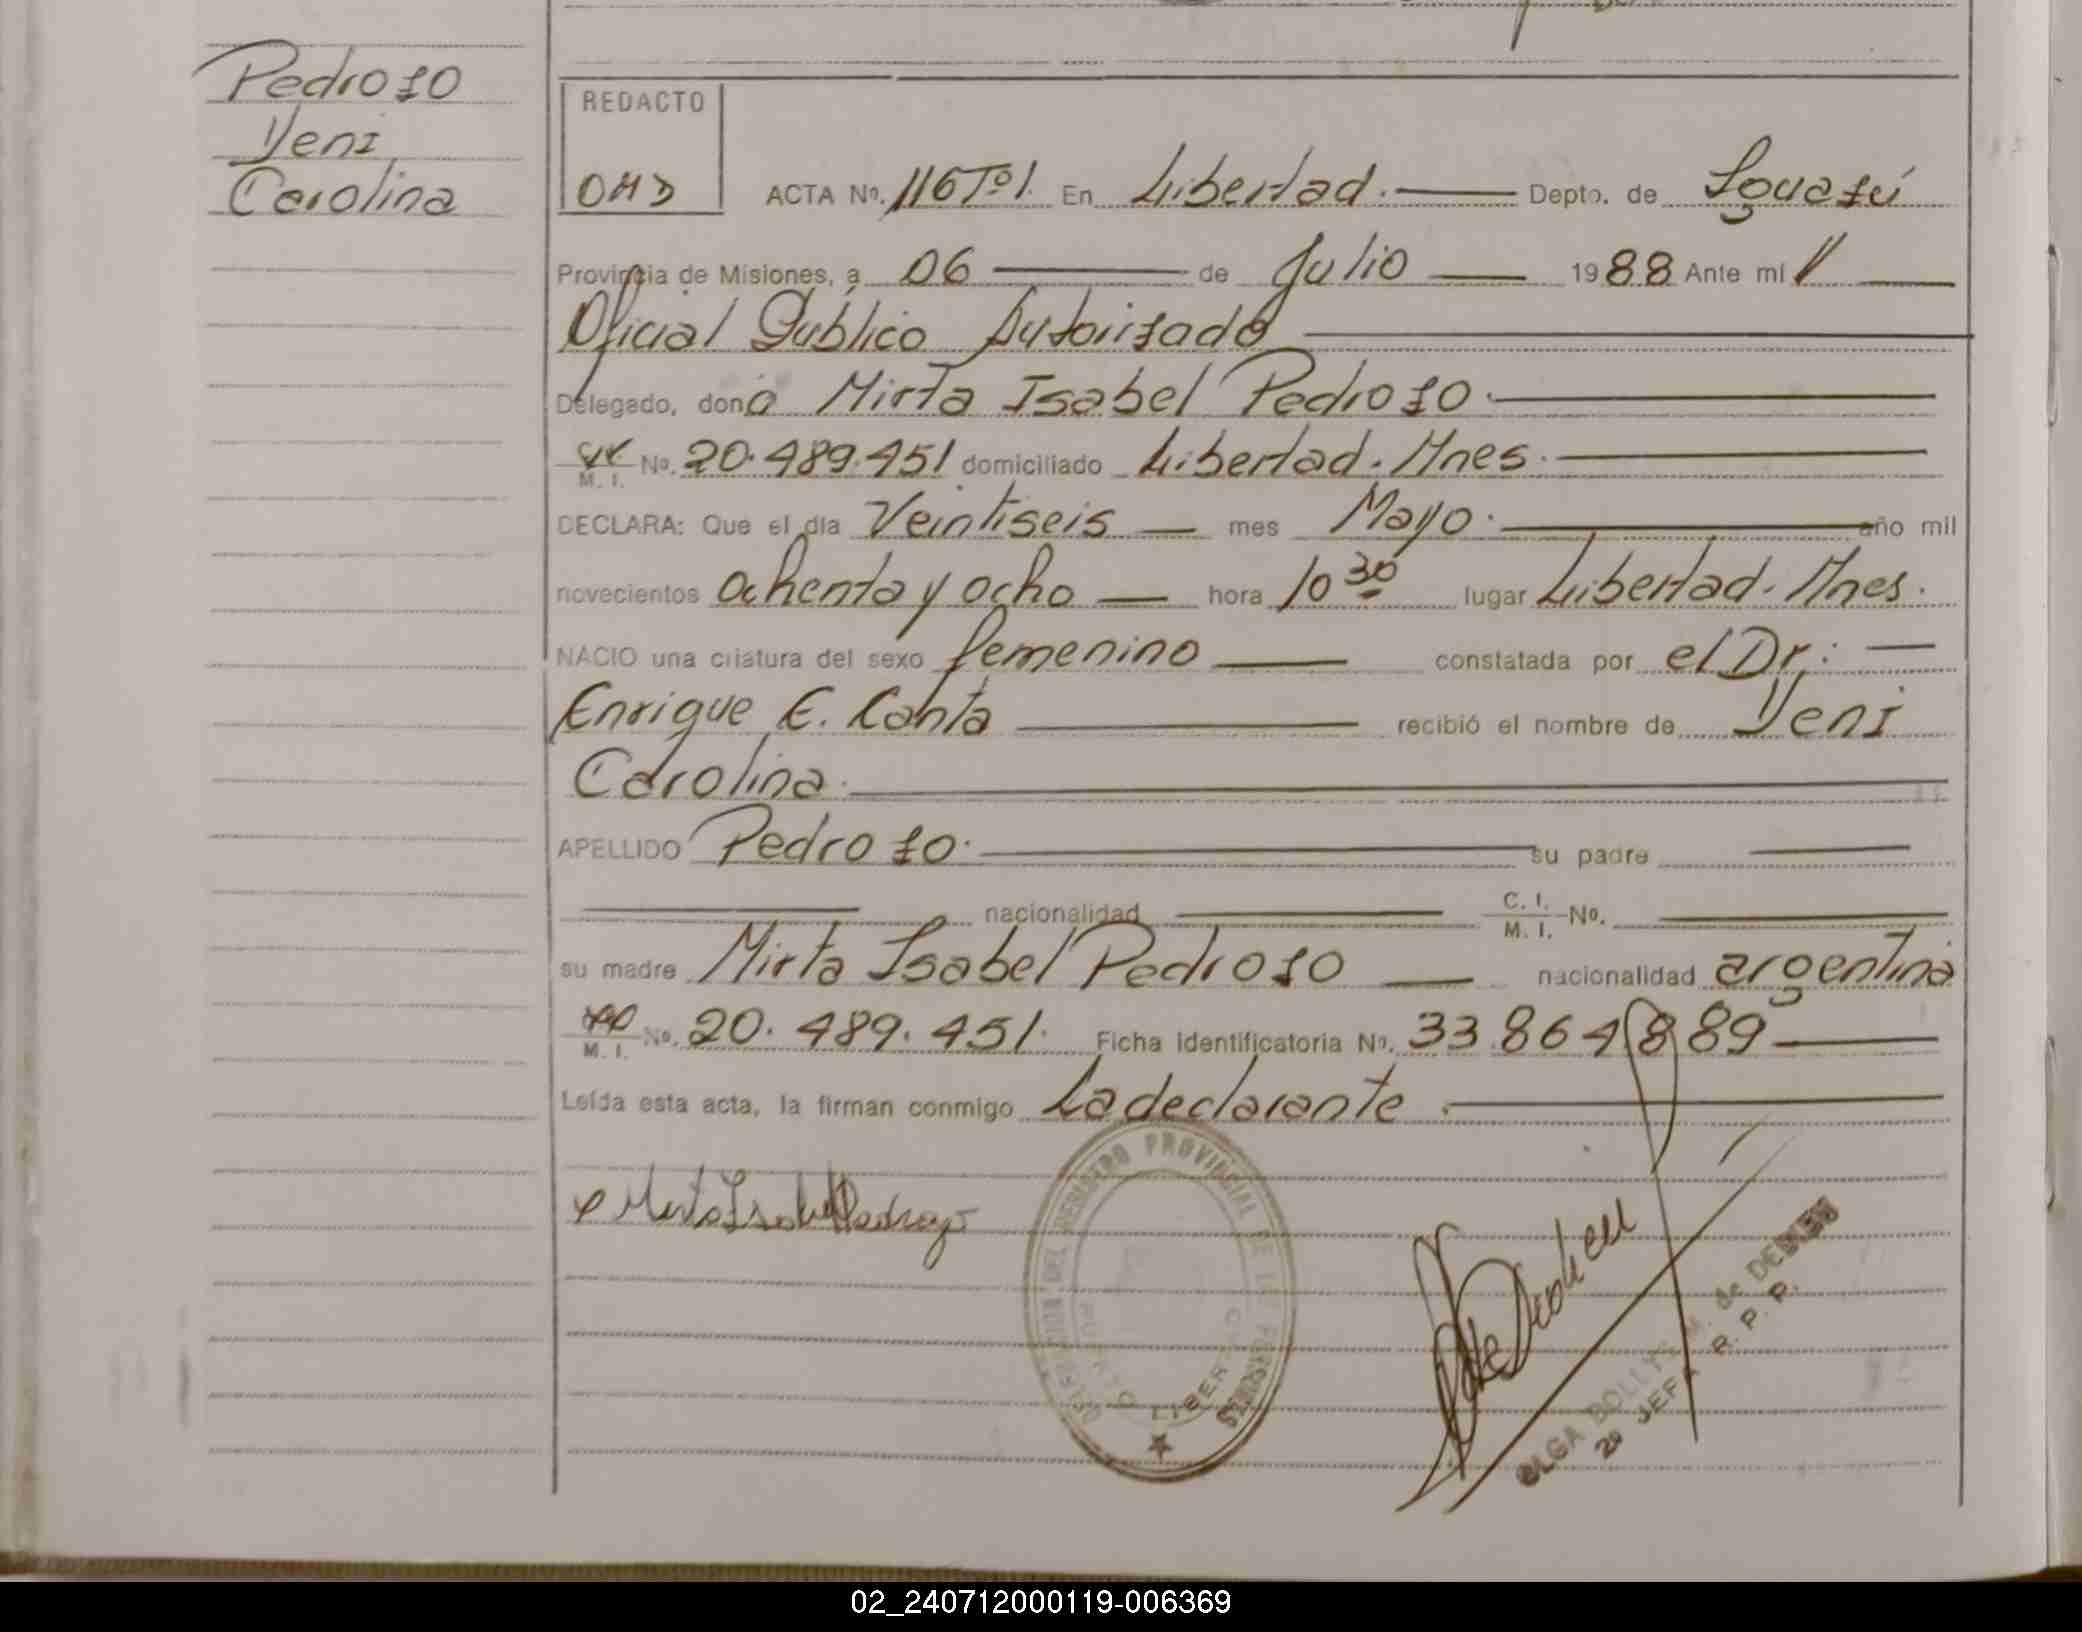 Pedrozo
Yeni
Carolina
REDACTO
OMD
ACTA No. 116 Tº1. En Libertad. Depto. de Iguazú
Provincia de Misiones, a 06 de Julio 1988 Ante mí
Oficial Público Autorizado
Delegado, dona Mirta Isabel Pedrozo.
M. I. No. 20.489.451 domiciliado Libertad. Mnes.
DECLARA: Que el día Veintiseis mes Mayo. año mil
novecientos ochenta y ocho hora 10 30 lugar Libertad. Mnes.
NACIO una criatura del sexo femenino constatada por el Dr:
Enrique E. Canta recibió el nombre de Yeni
Carolina.
APELLIDO Pedrozo. su padre
nacionalidad C. I. M. I. No.
su madre Mirta Isabel Pedrozo nacionalidad argentina
M. I. No. 20.489.451. Ficha Identificatoria No. 33.864.889
Leída esta acta, la firman conmigo La declarante.
Mirta Isabel Pedrozo
DEL REGISTRO PROVINCIAL DE LAS PERSONAS
PUERTO LIBERTAD
OLGA M. de
2º JEFA R. P. P.
02_240712000119-006369